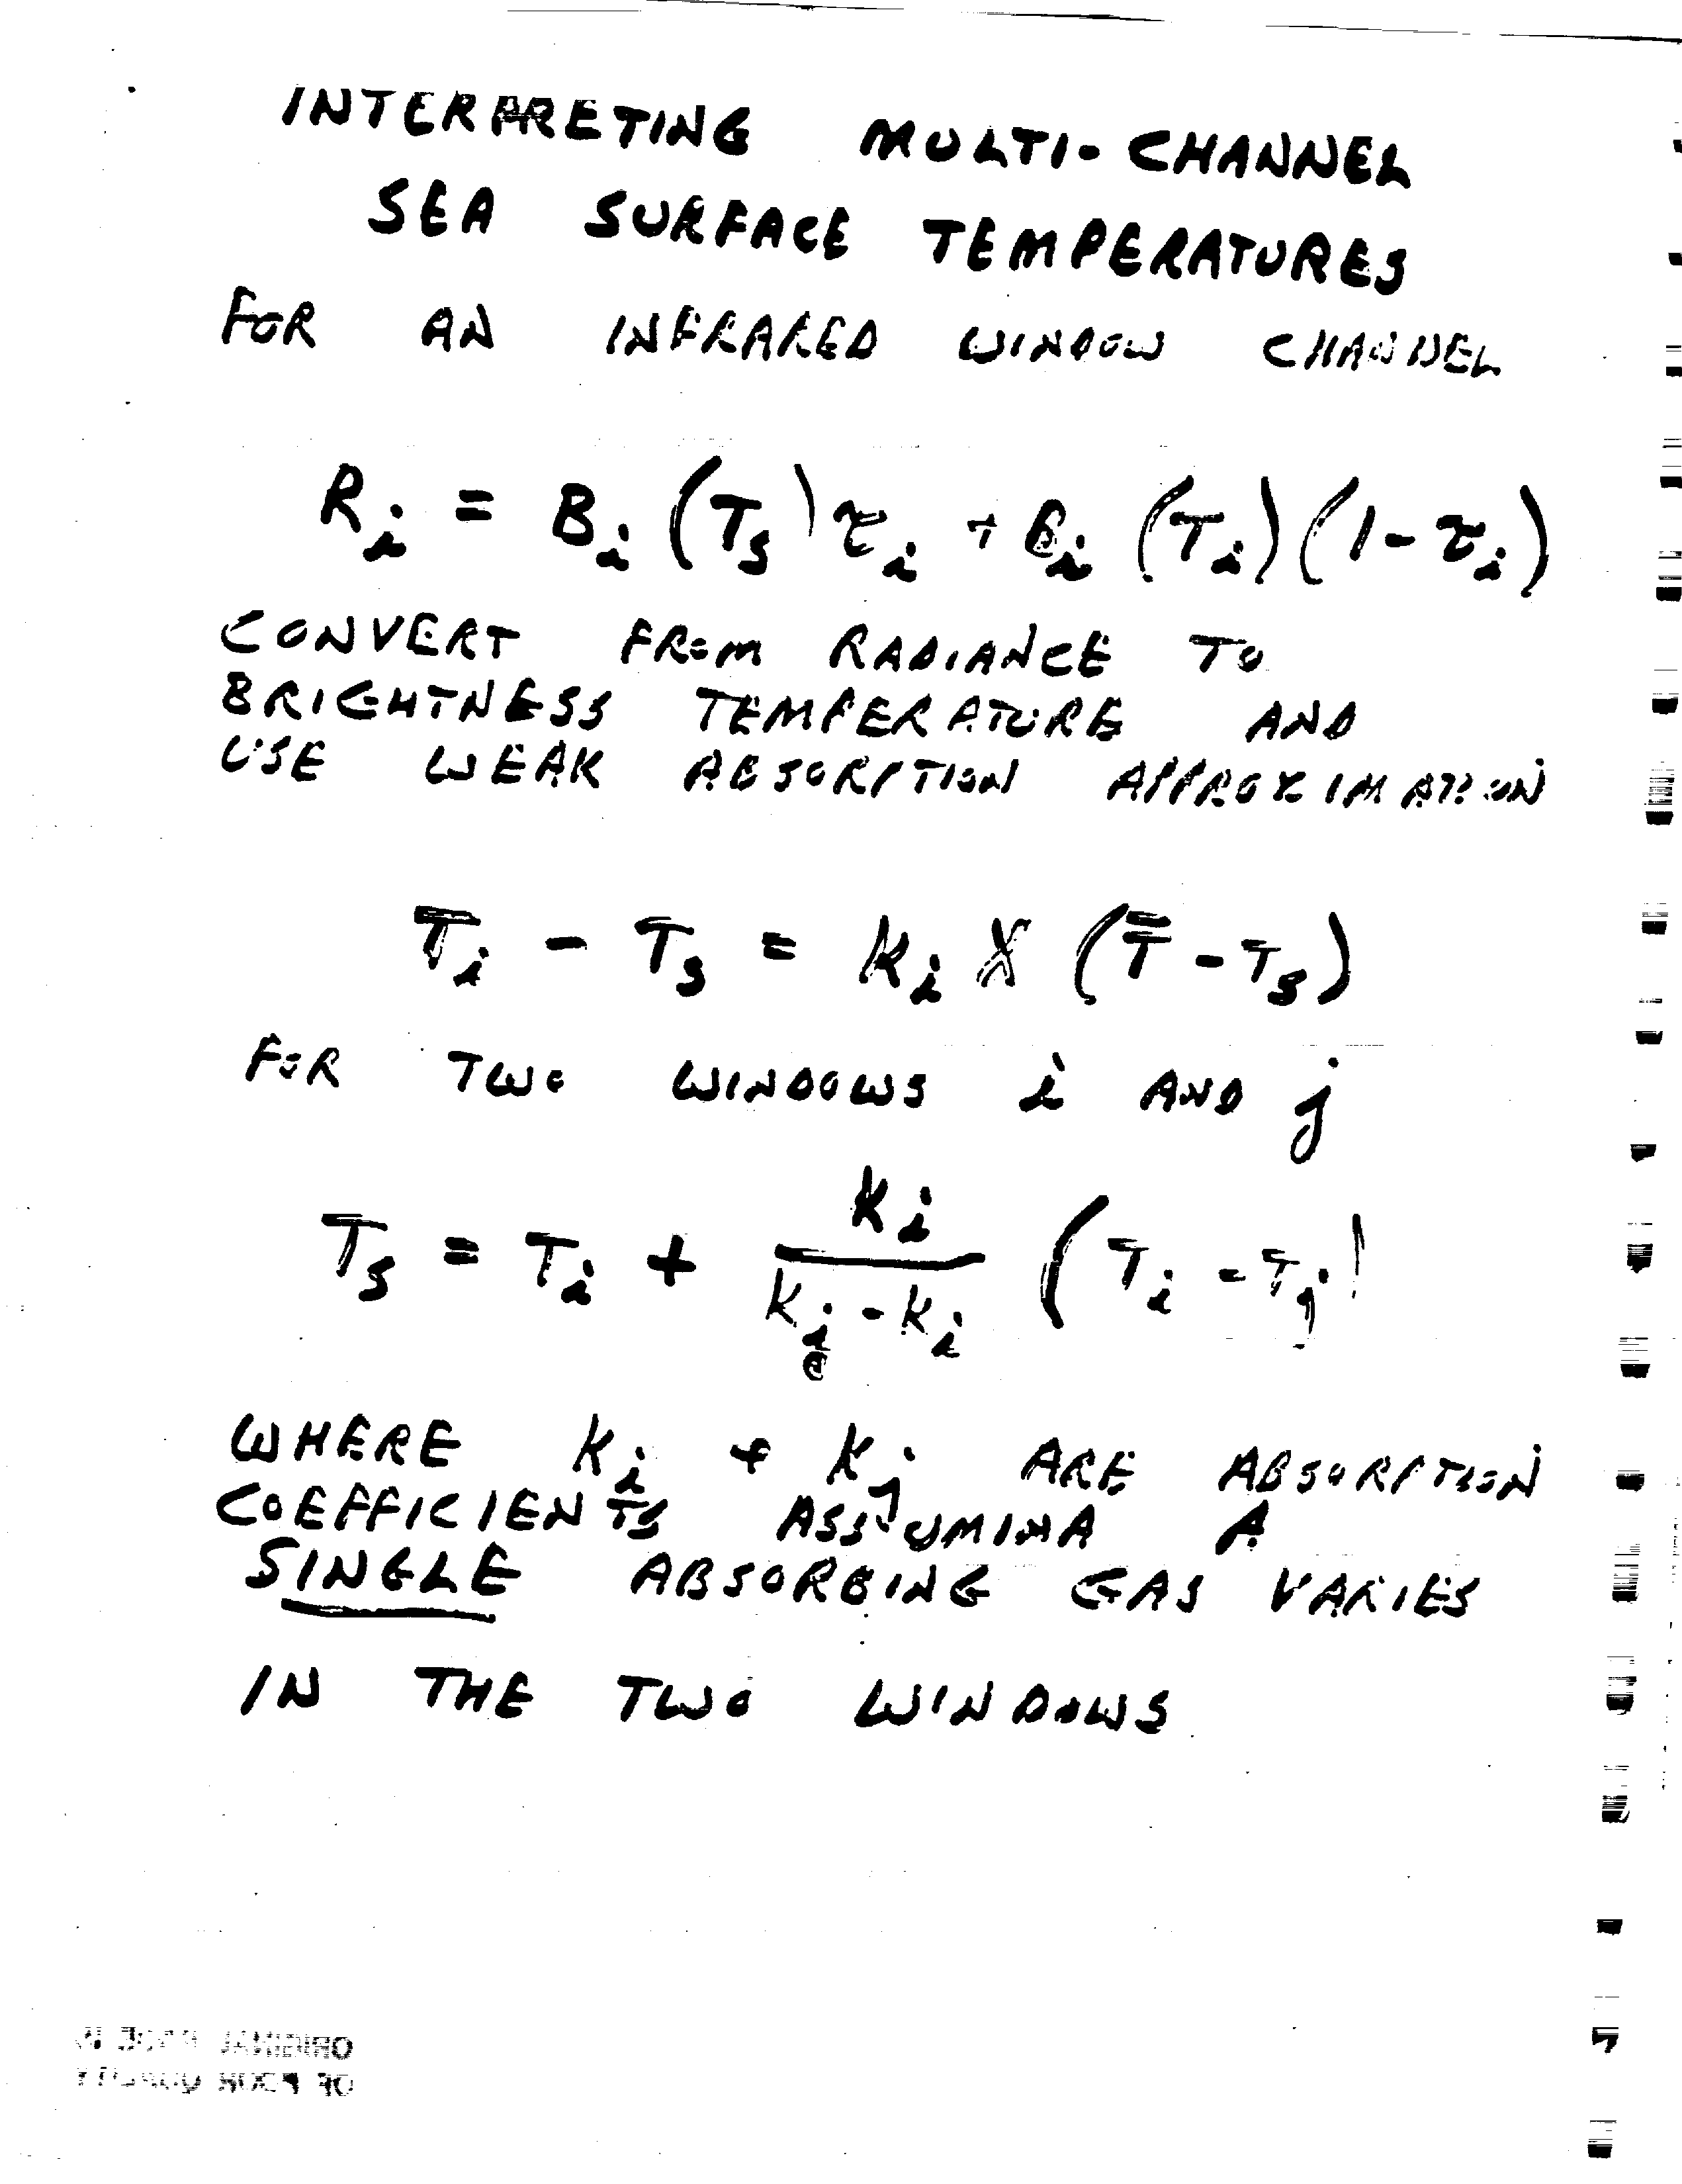 INTERPRETING MULTI-CHANNEL
SEA SURFACE TEMPERATURES
FOR AN INFRARED WINDOW CHANNEL
R_i = B_i (T_s) τ_i + B_i (T_i) (1 - τ_i)
CONVERT FROM RADIANCE TO
BRIGHTNESS TEMPERATURE AND
USE WEAK ABSORPTION APPROXIMATION
T_i - T_s = k_i X (T̄ - T_s)
FOR TWO WINDOWS i AND j
T_s = T_i + k_i / (k_j - k_i) (T_i - T_j)
WHERE k_i + k_j ARE ABSORPTION
COEFFICIENTS ASSUMING A
SINGLE ABSORBING GAS VARIES
IN THE TWO WINDOWS
ORIGINAL PAGE IS
OF POOR QUALITY